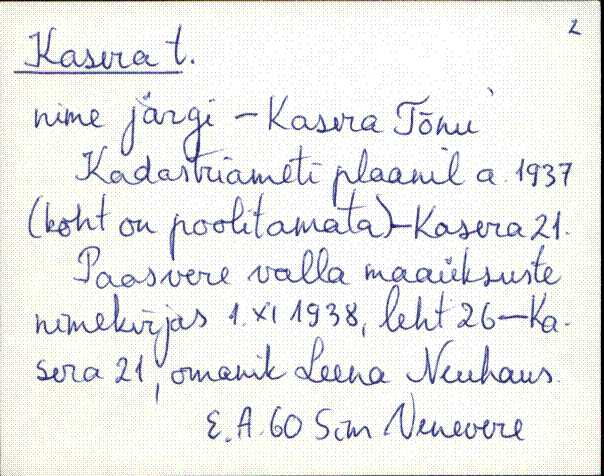 2
Kasera t.
nime järgi – Kasera Tõnu
Kadastriameti plaanil a. 1937
(koht on poolitamata) – Kasera 21.
Paasvere valla maaüksuste
nimekirjas 1. XI 1938, leht 26 – Ka-
sera 21, omanik Leena Neuhaus.
E.A. 60 Sim Venevere